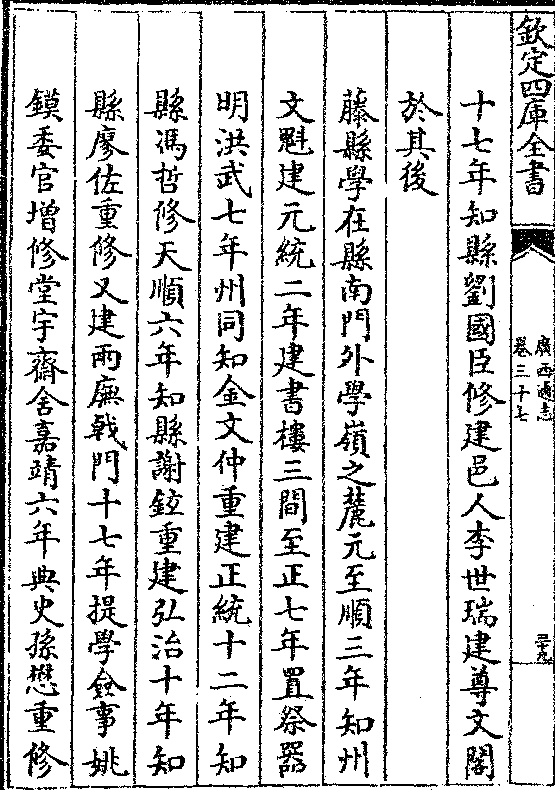 欽定四庫全書
廣西通志
卷三十七
三十九
十七年知縣劉國臣修建邑人李世瑞建尊文閣
於其後
藤縣學在縣南門外學嶺之麓元至順三年知州
文魁建元統二年建書樓三間至正七年置祭器
明洪武七年州同知金文仲重建正統十二年知
縣馮哲修天順六年知縣謝鉉重建弘治十年知
縣廖佐重修又建兩廡戟門十七年提學僉事姚
鏌委官增修堂宇齋舍嘉靖六年典史孫懋重修